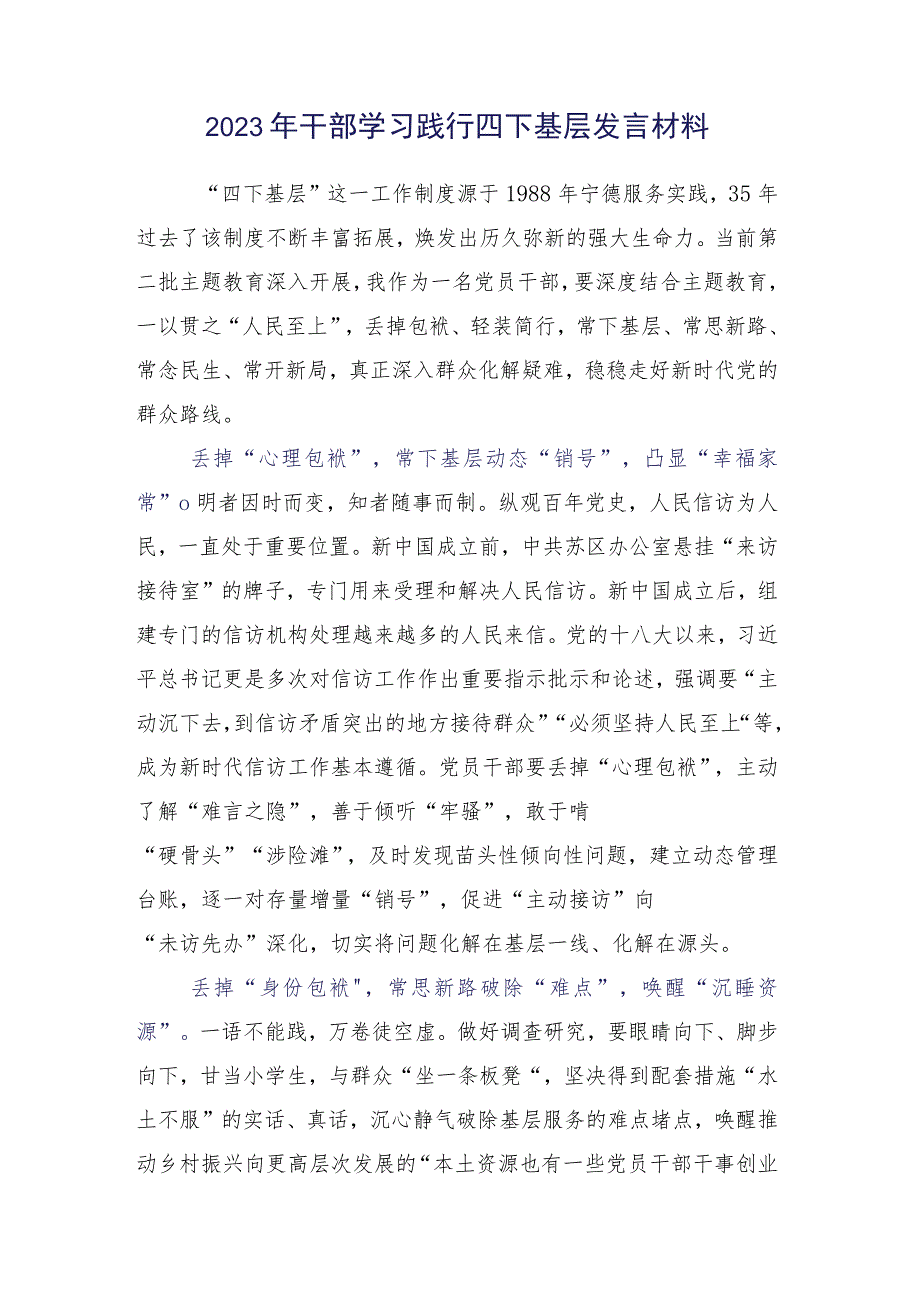 2023年干部学习践行四下基层发言材料
“四下基层”这一工作制度源于1988年宁德服务实践，35年
过去了该制度不断丰富拓展，焕发出历久弥新的强大生命力。当前第
二批主题教育深入开展，我作为一名党员干部，要深度结合主题教育，
一以贯之“人民至上”，丢掉包袱、轻装简行，常下基层、常思新路、
常念民生、常开新局，真正深入群众化解疑难，稳稳走好新时代党的
群众路线。
丢掉“心理包袱”，常下基层动态“销号”，凸显“幸福家
常”o明者因时而变，知者随事而制。纵观百年党史，人民信访为人
民，一直处于重要位置。新中国成立前，中共苏区办公室悬挂“来访
接待室”的牌子，专门用来受理和解决人民信访。新中国成立后，组
建专门的信访机构处理越来越多的人民来信。党的十八大以来，习近
平总书记更是多次对信访工作作出重要指示批示和论述，强调要“主
动沉下去，到信访矛盾突出的地方接待群众”“必须坚持人民至上“等，
成为新时代信访工作基本遵循。党员干部要丢掉“心理包袱”，主动
了解“难言之隐”，善于倾听“牢骚”，敢于啃
“硬骨头”“涉险滩”，及时发现苗头性倾向性问题，建立动态管理
台账，逐一对存量增量“销号”，促进“主动接访”向
“未访先办”深化，切实将问题化解在基层一线、化解在源头。
丢掉“身份包袱"，常思新路破除“难点”，唤醒“沉睡资
源”。一语不能践，万卷徒空虚。做好调查研究，要眼睛向下、脚步
向下，甘当小学生，与群众“坐一条板凳“，坚决得到配套措施“水
土不服”的实话、真话，沉心静气破除基层服务的难点堵点，唤醒推
动乡村振兴向更高层次发展的“本土资源也有一些党员干部干事创业